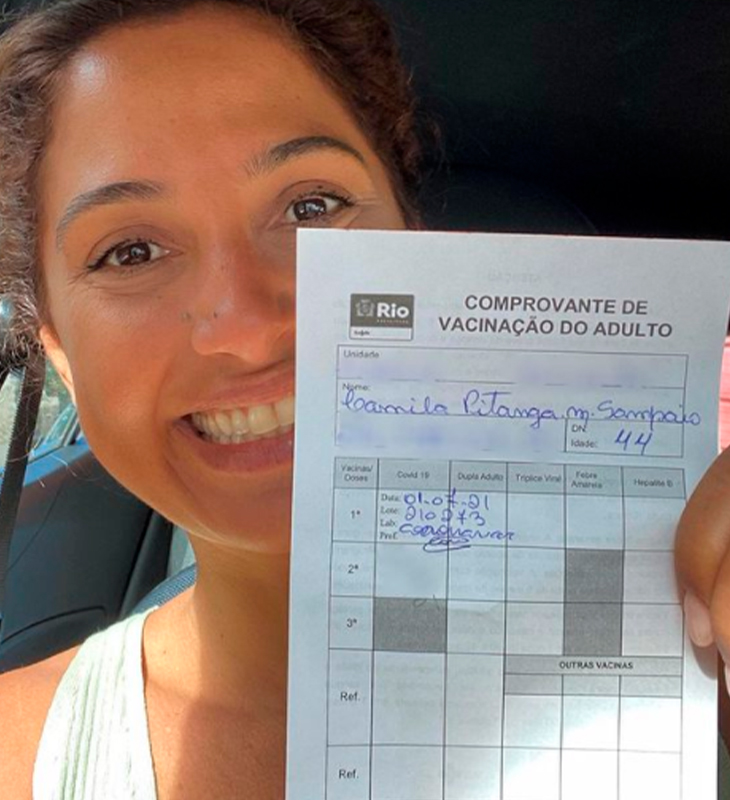 Rio
COMPROVANTE DE
VACINAÇÃO DO ADULTO
Unidade
Nome:
Camila Pitanga m. Sampaio
DN:
Idade: 44
Vacinas/ Doses Covid 19 Dupla Adulto Tríplice Viral Febre Amarela Hepatite B
1ª
Data: 01.07.21
Lote: 210273
Lab:
Prof:
2ª
3ª
OUTRAS VACINAS
Ref.
Ref.